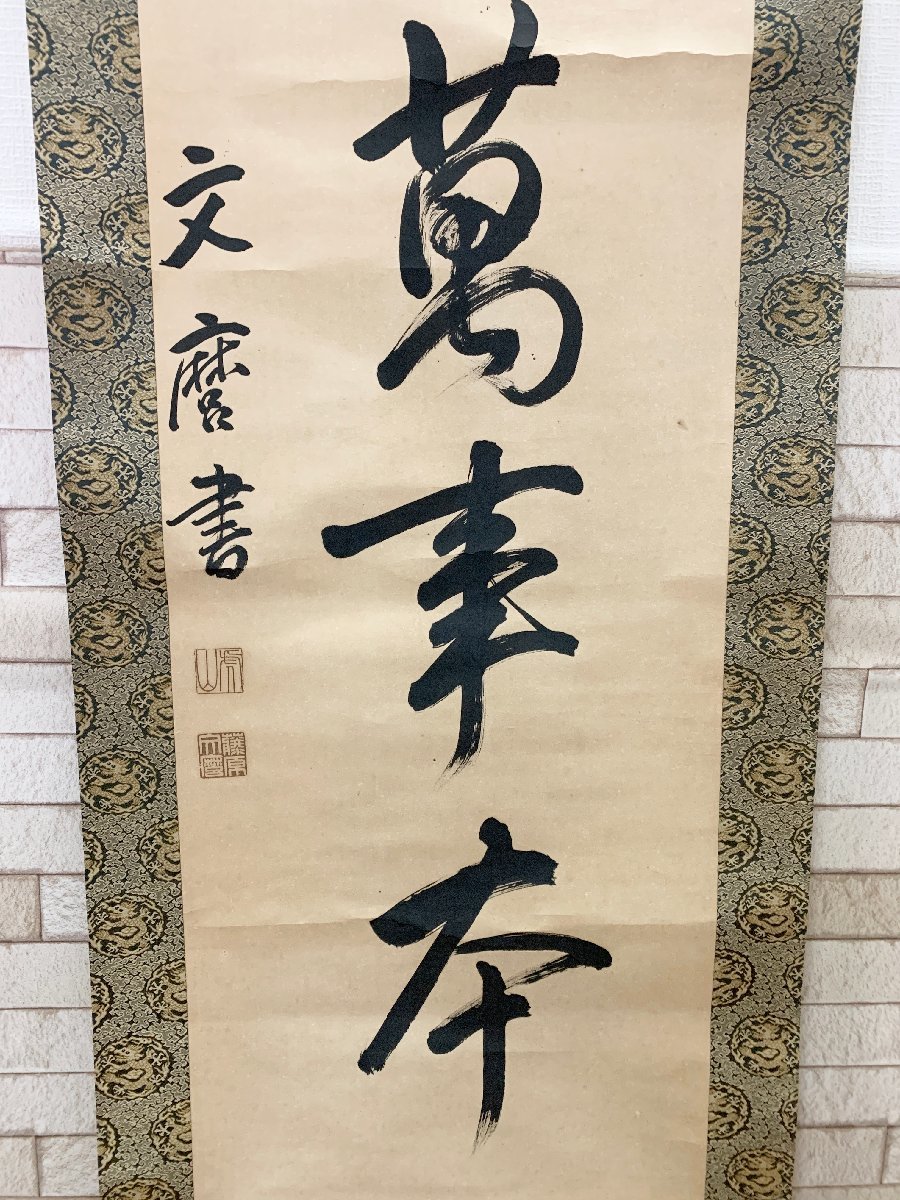 萬事本
文麿書
藤原文麿